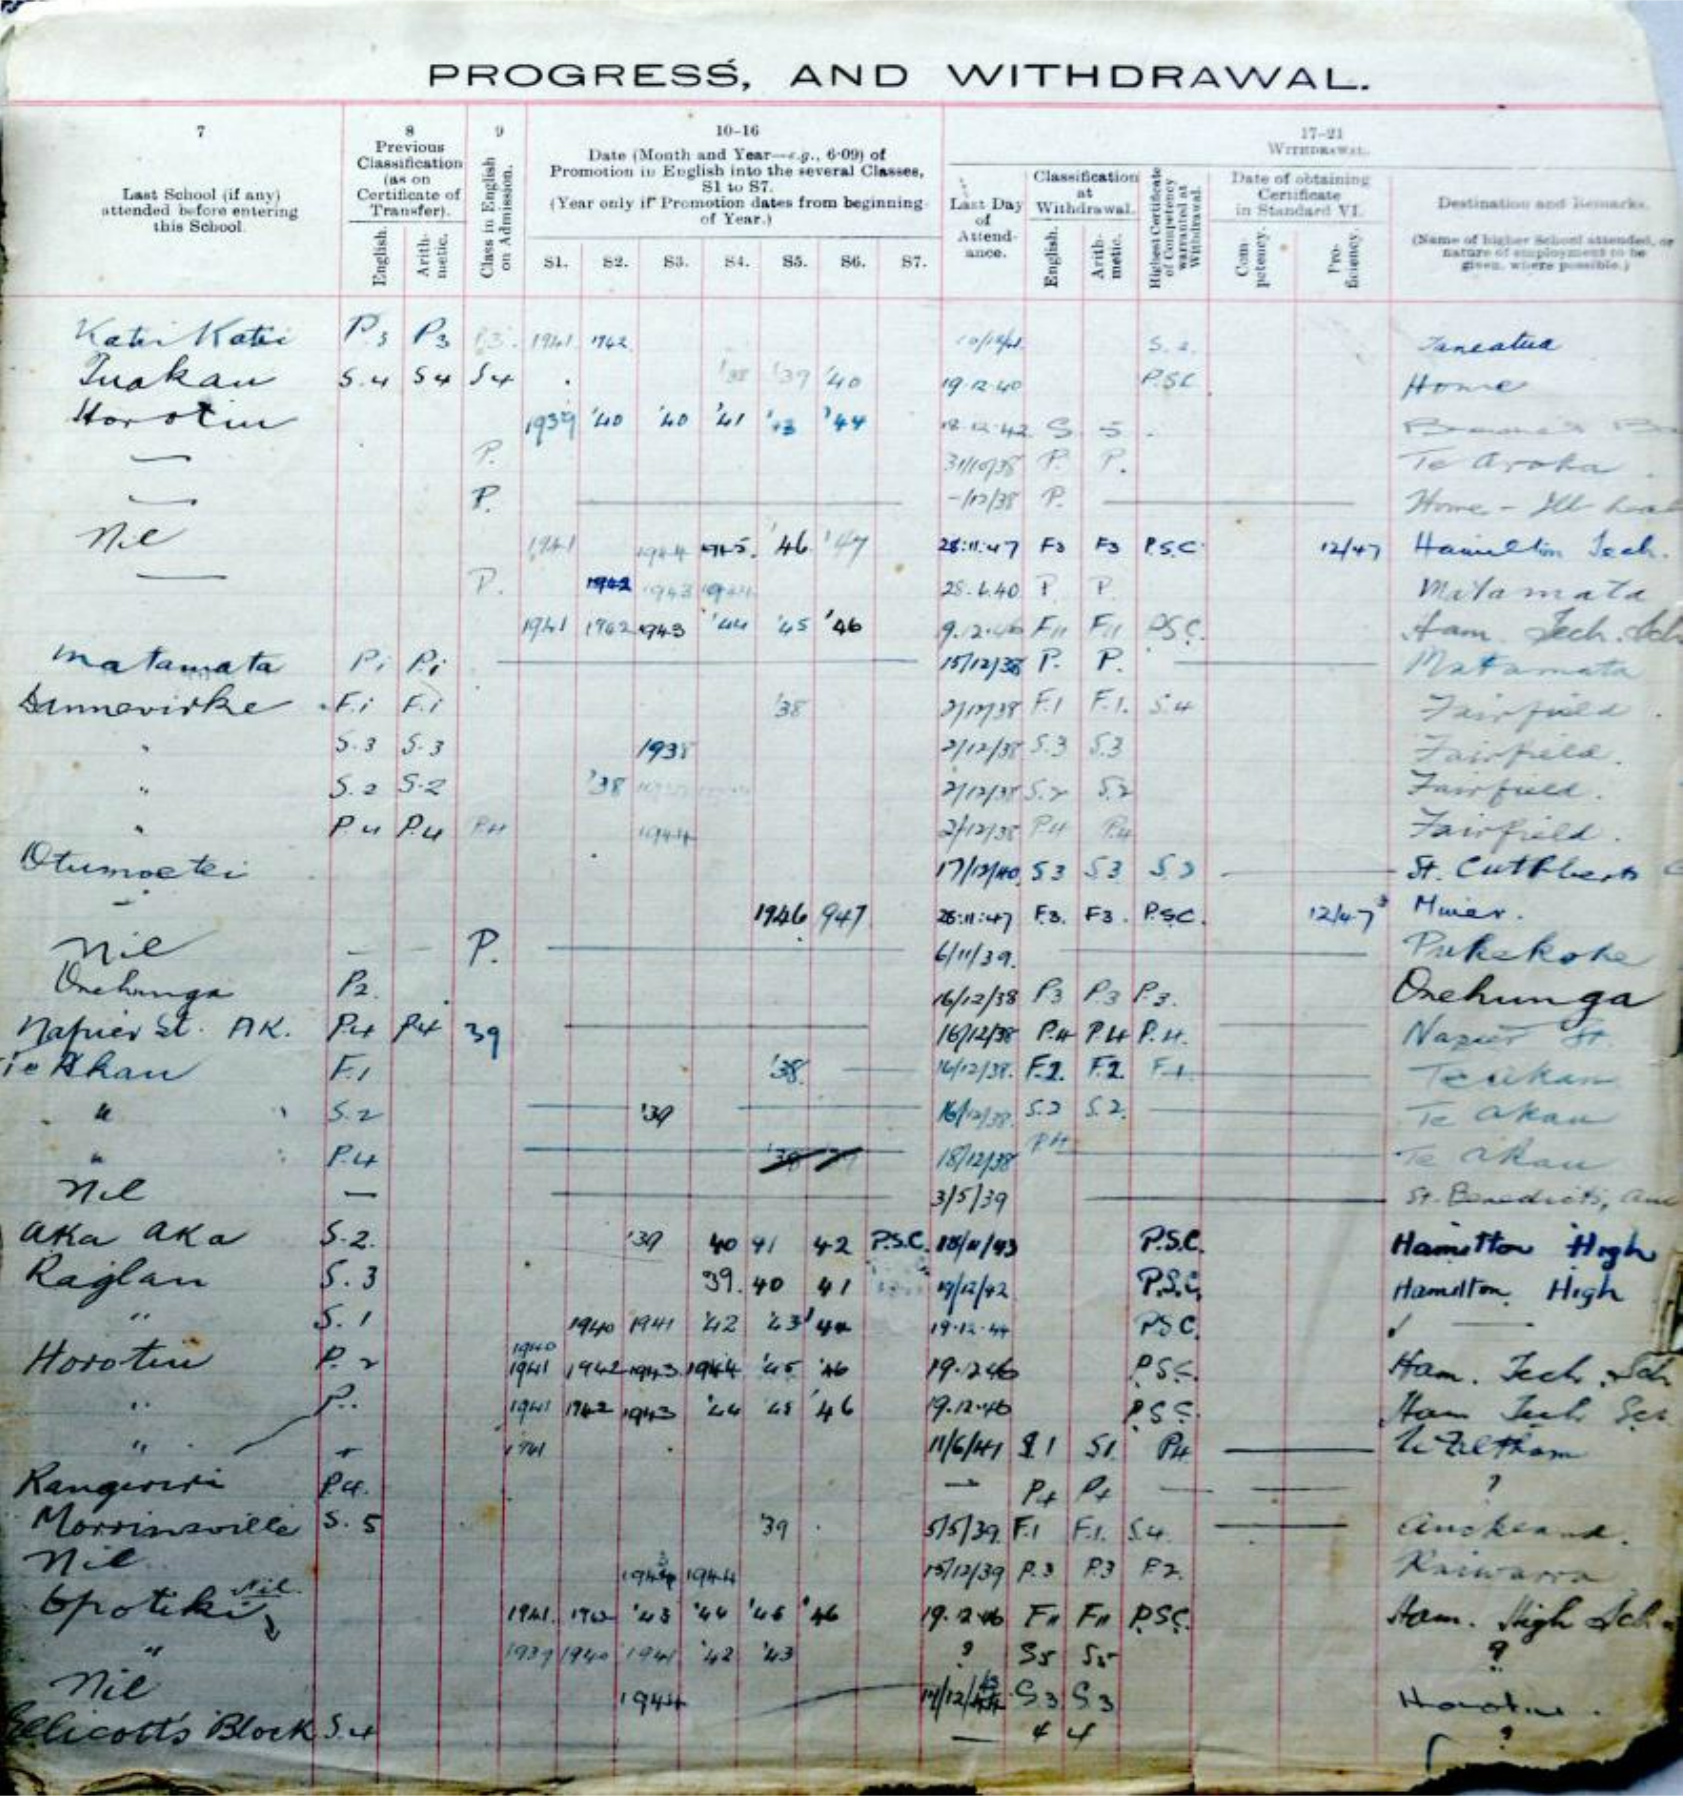 PROGRESS, AND WITHDRAWAL.
7 8 9 10-16 17-21
Last School (if any) attended before entering this School.
Previous Classification (as on Certificate of Transfer).
English. Arithmetic.
Class in English on Admission.
Date (Month and Year—e.g., 6·09) of Promotion in English into the several Classes, S1 to S7.
(Year only if Promotion dates from beginning of Year.)
S1. S2. S3. S4. S5. S6. S7.
WITHDRAWAL.
Last Day of Attendance.
Classification at Withdrawal.
English. Arithmetic.
Highest Certificate of Competency warranted at Withdrawal.
Date of obtaining Certificate in Standard VI.
Competency. Proficiency.
Destination and Remarks.
(Name of higher School attended, or nature of employment to be given, where possible.)
Kati Kati P3 P3 P3. 1941 1942 S.2. Taneatua
Tuakau S.4 S4 S4 '38 '39 '40 19.12.40 P.S.C. Home
Horotiu 1939 '40 '40 '41 '43 '44 18.12.42 S. 5
— P. 31/10/38 P. P. Te Aroha
— P. -/12/38 P. Home - Ill
Nil 1941 1944 1945. '46 '47 28:11:47 F3 F3 P.S.C. 12/47 Hamilton Tech.
— P. 1942 1943 1944 28.6.40 P P. Matamata
1941 1942 1943 '44 '45 '46 9.12.46 F11 F11 P.S.C. Ham. Tech. Sch
Matamata Pi P.i 15/12/38 P. P. Matamata
Dannevirke F.i F.i '38 2/12/38 F.1 F.1. S.4 Fairfield.
" S.3 S.3 1938 2/12/38 S.3 S.3 Fairfield.
" S.2 S.2 '38 2/12/38 S.2 S.2 Fairfield.
" P.4 P.4 P.4 1944 2/12/38 P4 P4 Fairfield.
Otumoetei 17/12/40 S3 S3 S.3 St. Cuthberts
" 1946 947 28:11:47 F3. F3. P.S.C. 12/47
Nil — — P. 6/11/39. Pukekohe
Onehunga P2. 16/12/38 P3 P.3 P.3. Onehunga
Napier St. AK. P4 P4 39 16/12/38 P.4 P.4 P.4. Napier St.
Te Akau F.1 '38. 16/12/38. F.2. F.2. F.1. Te Akau
" S.2 '39 16/12/38. S.2 S.2. Te Akau
" P.4 '38 18/12/38 P4 Te Akau
Nil — 3/5/39 St. Benedicts,
Aka Aka S.2. '39 40 41 42 P.S.C. 18/11/43 P.S.C. Hamilton High
Raglan S.3 39. 40 41 19/12/42 P.S.C. Hamilton High
" S.1 1940 1941 '42 '43 '44 19.12.44 P.S.C. —
Horotiu P.2 1940 1941 1942 1943 1944 '45 '46 19.12.46 P.S.C. Ham. Tech. Sch
" P. 1941 1942 1943 '44 '45 '46 19.12.46 P.S.C. Ham Tech Sch
" 1941 11/6/41 S1 S1 P4
Rangiriri P4. — P4 P4 — — ?
Morrinsville S.5 '39 5/5/39 F.1 F.1. S.4. Auckland.
Nil 1944 15/12/39 P.3 P.3 F.2.
Opotiki Nil 1941. 1942 '43 '44 '45 '46 19.12.46 F11 F11 P.S.C. Ham. High Sch.
" 1939 1940 1941 '42 '43 ? S5 S5 ?
Nil 1944 S3 S3 Horotiu.
Ellicott's Block S.4 — 4 4 ?